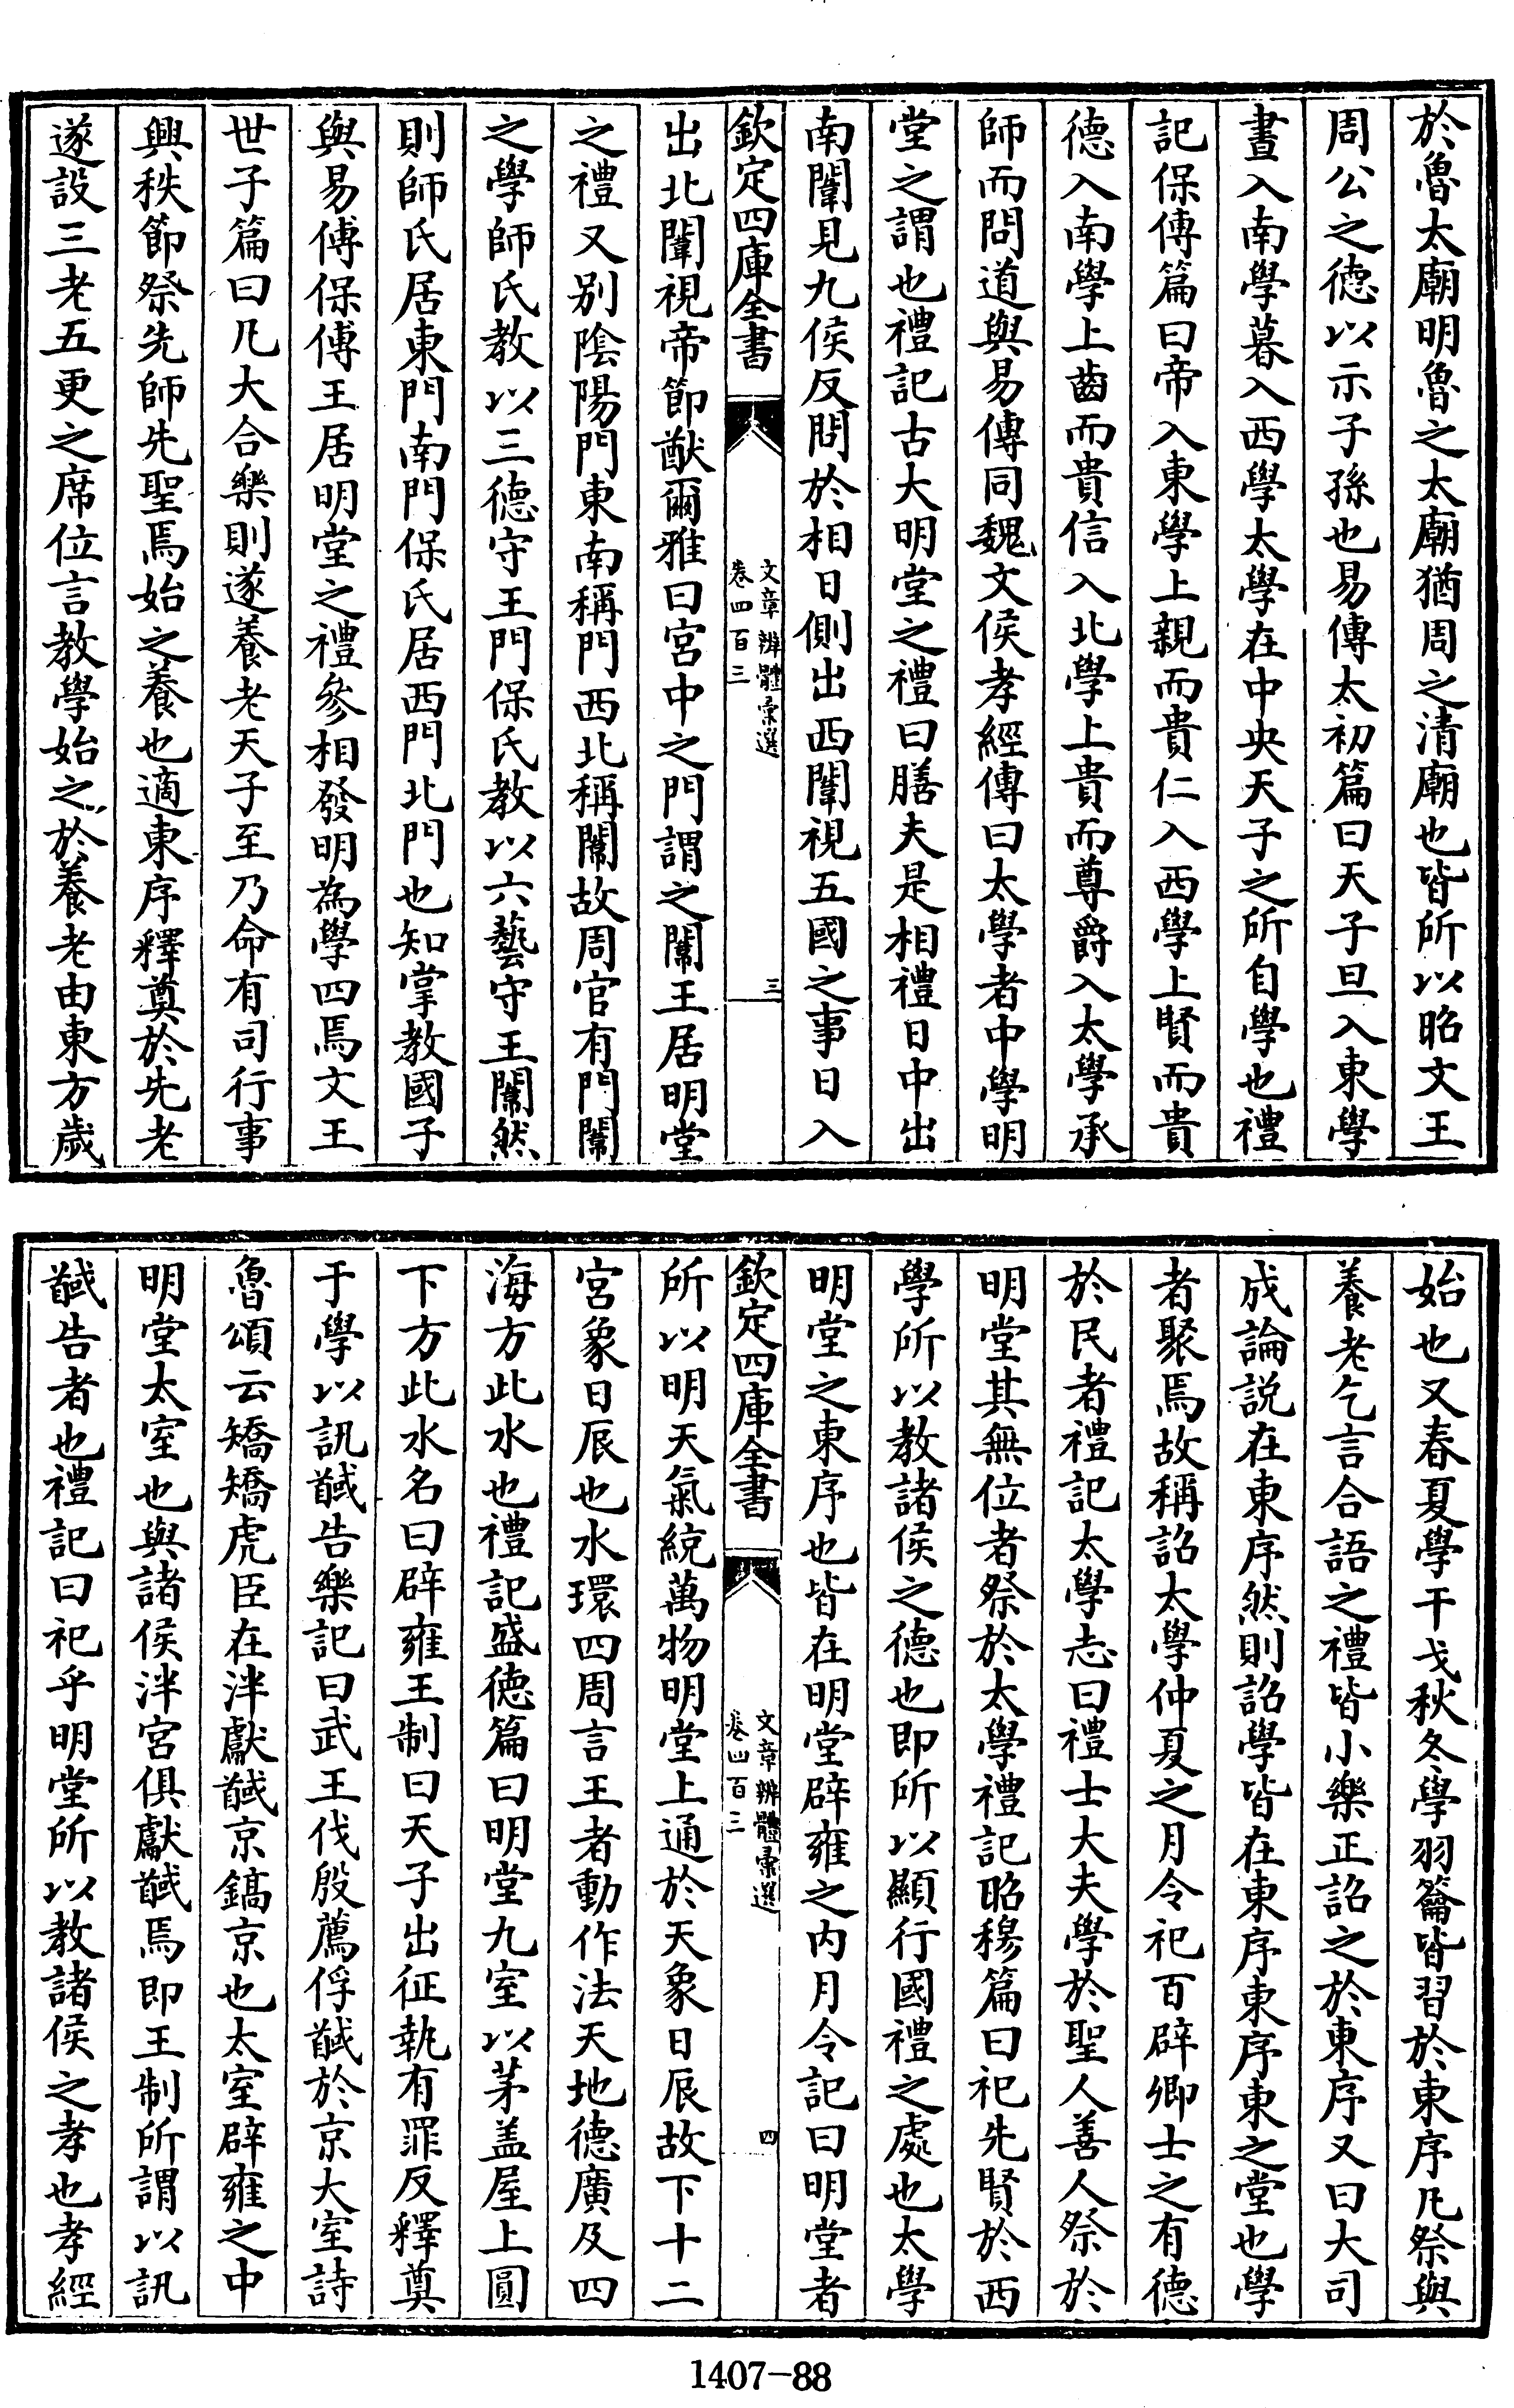 於魯太廟明魯之太廟猶周之清廟也皆所以昭文王
周公之德以示子孫也易傳太初篇曰天子旦入東學
晝入南學暮入西學太學在中央天子之所自學也禮
記保傅篇曰帝入東學上親而貴仁入西學上賢而貴
德入南學上齒而貴信入北學上貴而尊爵入太學承
師而問道與易傳同魏文侯孝經傳曰太學者中學明
堂之謂也禮記古大明堂之禮曰膳夫是相禮日中出
南闈見九侯反問於相日側出西闈視五國之事日入
欽定四庫全書
文章辨體彙選
卷四百三
三
出北闈視帝節猷爾雅曰宮中之門謂之闈王居明堂
之禮又別陰陽門東南稱門西北稱闈故周官有門闈
之學師氏教以三德守王門保氏教以六藝守王闈然
則師氏居東門南門保氏居西門北門也知掌教國子
與易傅保傅王居明堂之禮參相發明為學四焉文王
世子篇曰凡大合樂則遂養老天子至乃命有司行事
興秩節祭先師先聖焉始之養也適東序釋奠於先老
遂設三老五更之席位言教學始之於養老由東方歲
始也又春夏學干戈秋冬學羽籥皆習於東序凡祭與
養老乞言合語之禮皆小樂正詔之於東序又曰大司
成論説在東序然則詔學皆在東序東序東之堂也學
者聚焉故稱詔太學仲夏之月令祀百辟卿士之有德
於民者禮記太學志曰禮士大夫學於聖人善人祭於
明堂其無位者祭於太學禮記昭穆篇曰祀先賢於西
學所以教諸侯之德也即所以顯行國禮之處也太學
明堂之東序也皆在明堂辟雍之内月令記曰明堂者
欽定四庫全書
文章辨體彙選
卷四百三
四
所以明天氣統萬物明堂上通於天象日辰故下十二
宮象日辰也水環四周言王者動作法天地德廣及四
海方此水也禮記盛德篇曰明堂九室以茅盖屋上圓
下方此水名曰辟雍王制曰天子出征執有罪反釋奠
于學以訊馘告樂記曰武王伐殷薦俘馘於京大室詩
魯頌云矯矯虎臣在泮獻馘京鎬京也太室辟雍之中
明堂太室也與諸侯泮宮俱獻馘焉即王制所謂以訊
馘告者也禮記曰祀乎明堂所以教諸侯之孝也孝經
1407-88